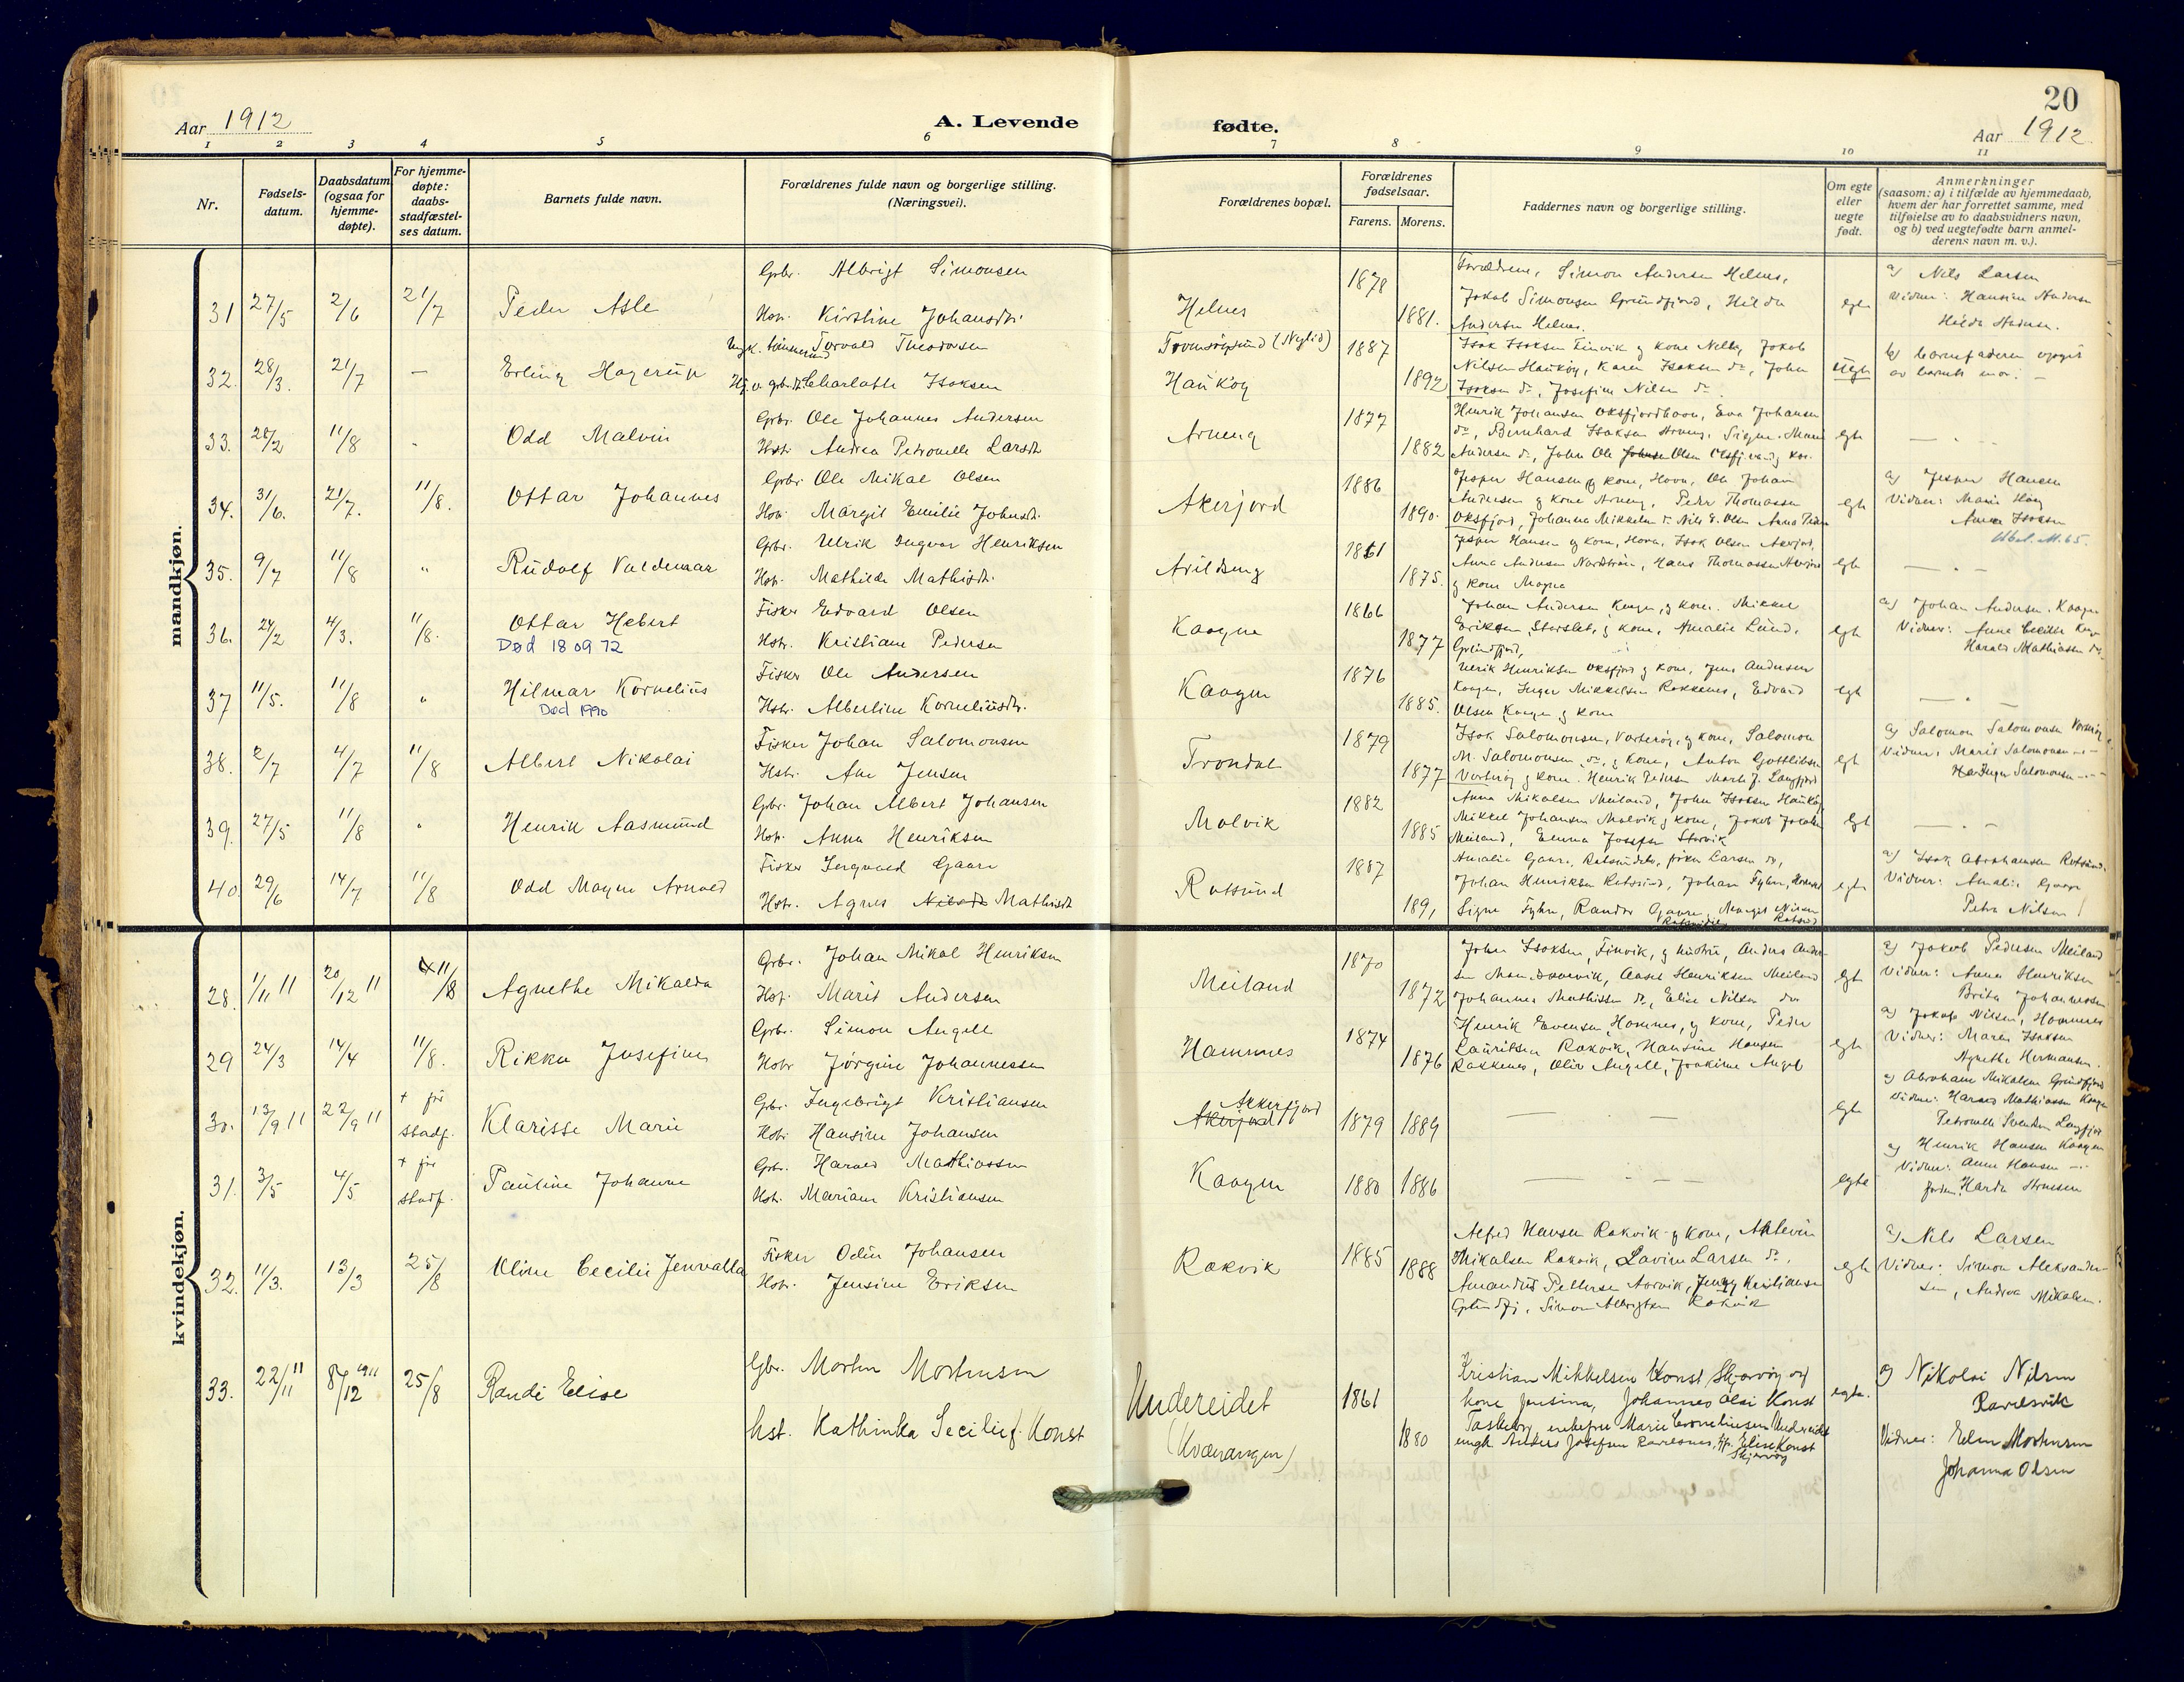 Aar 1912
A. Levende
fødte.
20
Aar 1912
1 2 3 4 5 6 7 8 9 10 11
Nr.
Fødsels-
datum.
Daabsdatum
(ogsaa for
hjemme-
døpte).
For hjemme-
døpte:
daabs-
stadfæstel-
ses datum.
Barnets fulde navn.
Forældrenes fulde navn og borgerlige stilling.
(Næringsvei).
Forældrenes bopæl.
Forældrenes
fødselsaar.
Farens. Morens.
Faddernes navn og borgerlige stilling.
Om egte
eller
uegte
født.
Anmerkninger
(saasom: a) i tilfælde av hjemmedaab,
hvem der har forrettet samme, med
tilføielse av to daabsvidners navn,
og b) ved uegtefødte barn anmel-
derens navn m. v.).
mandkjøn.
31 27/5 2/6 21/7 Peder Asle
Gbr. Albrigt Simonsen
Hstr. Kirstine Johansdtr.
Helnes 1878 1881.
Forældrene, Simon Andersen Helnes,
Jakob Simonsen Grundfjord, Hilda
Andersen Helnes.
egte
a) Nils Larsen
Vidner: Hansine Andersen
Hilda Andersen.
32. 28/3. 21/7 — Erling Hagerup
Torvald Theodorsen
Charlotte Isaksen
Tromsøysund (Nylid)
Haukøy 1887 1892
Isak Isaksen Finvik og kone Nelly, Jakob
Nilsen Haukøy, Karen Isaksen do, John
Isaksen do, Josefine Nilsen do
uegte
b) barnefaderen opgit
av barnets mor. —
33. 28/2 11/8 - Odd Malvin
Gbr. Ole Johannes Andersen
Hstr. Andrea Petronelle Larsdtr
Arnøy 1877 1882
Henrik Johansen Oksfjordhavn, Eva Johansen
do, Bernhard Isaksen Arnøy, Signe Marie
Andersen do, John Ole Johnsen Olsen
egte
34. 31/6. 21/7. 11/8. Ottar Johannes
Gbr. Ole Mikal Olsen
Hstr. Margit Emilie Johnsdtr.
Akerfjord 1886 1890.
Jesper Hansen og kone, Havn, Ole Johan
Andersen og kone Arnøy, Peder Thomassen
Oksfjord, Johanna Mikkelsen do Nils E. Olsen Anna Peder
egte
a) Jesper Hansen
Vidner: Marie Høy
Anna Isaksen
35. 9/7 11/8 " Rudolf Valdemar
Gbr. Ulrik Ingvar Henriksen
Hstr. Mathilde Mathisdtr.
Arildeng 1861 1875.
Jesper Hansen og kone, Havn, Isak Olsen
Anna Andersen Nordstrøm, Hans Thomassen
og kone Magna
egte
36. 24/2 4/3. 11/8. Ottar Hebert
Død 18 09 72
Fisker Edvard Olsen
Hstr. Kristiane Pedersen
Kaagen 1866 1877
Johan Andersen Kaagen, og kone. Mikkel
Eriksen, Storslet, og kone, Amalie Lund,
Grundfjord,
egte
a) Johan Andersen, Kaagen
Vidner: Anne Cecilie
Harald Mathiassen do
37 11/5. 11/8 " Hilmar Kornelius
Død 1990
Fisker Ole Andersen
Hstr. Albertine Korneliusdtr.
Kaagen 1876 1885.
Ulrik Henriksen Oksfjord og kone, Jens Andersen
Kaagen, Inger Mikkelsen Rakkenes, Edvard
Olsen Kaagen og kone
egte
38. 2/7 4/7 11/8 Albert Nikolai
Fisker Johan Salomonsen
Hstr. Ane Jensen
Trondal 1879 1877
Isak Salomonsen, Vorterøy, og kone, Salomon
M. Salomonsen, do, og kone, Anton Gottlibsen
Vorterøy og kone. Henrik Pedersen
egt
a) Salomon Salomonsen Vorterøy
Vidner: Marit Salomonsen
Inger Salomonsen
39. 27/5 11/8 " Henrik Aasmund
Gbr. Johan Albert Johansen
Hstr. Anna Henriksen
Molvik 1882 1885
Anna Mikalsen Meiland, John Isaksen Haukøy
Mikkel Johansen Molvik og kone, Jakob Jakobsen
Meiland, Emma Josefsen Storvik
Egt
40. 29/6 14/7 11/8 Odd Magne Arnold
Fisker Ingvald Gaare
Hstr. Agnes Nilsdtr Mathisdtr
Rotsund 1887 1891
Amalie Gaare, Rotsundelv, Larsen do,
Johan Henriksen Rotsund, Johan Fyhn,
Signe Fyhn, Randor Gaare, Margit Nilsen
egte
a) Isak Abrahamsen Rotsund.
Vidner: Amalie Gaare
Petra Nilsen
kvindekjøn.
28. 1/11 11 20/12 11 11/8 Agnethe Mikalda
Gbr. Johan Mikal Henriksen
Hstr. Marit Andersen
Meiland 1870 1872
John Isaksen, Finvik, og hustru, Anders Ander-
sen, Aaset Henriksen Meiland
Johannes Mathissen do, Elise Nilsen do
egt
a) Jakob Pedersen Meiland
Vidner: Anna Henriksen
Brita Johannessen
29 24/3 14/4 11/8. Rikka Josefine
Gbr. Simon Angell
Hstr Jørgine Johannessen
Hamnes 1874 1876
Henrik Evensen, Hamnes, og kone, Peder
Lauritsen Rakvik, Hansine Hansen
Rakkenes, Oliv Angell, Joakime Angel
egte
a) Jakob Nilsen, Hamnes
Vidner: Maren Isaksen
Agnethe Hermansen.
30. 13/9 11 22/9 11 + før
stadf. Klarisse Marie
Gbr. Ingebrigt Kristiansen
Hstr Hansine Johansen
Akkerfjord
Akerfjord 1879 1889
— —
egte
a) Abraham Mikalsen Grundfjord
Vidner: Harald Mathiassen Kaagen
Petronelle Svendsen Langfjord
31. 3/5 4/5 + før
stadf. Pauline Johanne
Gbr. Harald Mathiassen
Hstr. Mariane Kristiansen
Kaagen 1880 1886
egte
a) Henrik Hansen Kaagen
Vidner: Anne Hansen
32. 11/3. 13/3 25/8 Oline Cecilie Jenvalla
Fisker Odin Johansen
Hstr. Jensine Eriksen
Rakvik 1885 1888
Alfred Hansen Rakvik og kone,
Mikalsen Rakvik, Lavine Larsen do,
Amandus Pettersen Aarvik, Jenny Kristiansen
Grundfj, Simon Albrigtsen Rakvik
egte
a) Nils Larsen
Vidner: Simon Aleksander-
sen, Andrea Mikalsen.
33. 22/11 11 8/12 1911 25/8 Randi Elise
Gbr. Morten Mortensen
hst. Kathinka Secilie f. Konst
Undereidet
(Kvænangen)
1861 1880
Kristian Mikkelsen Konst Skjervøy og
kone Jensina, Johannes Olai Konst
Taskeby, enkefru Marie Corneliusen Undereidet
ungk Anders Josefsen Ravelsnes, Elise Konst
Skjervøy
egte.
a) Nikolai Nilsen
Ravelsvik
Vidner: Edin Mortensen
Johanna Olsen